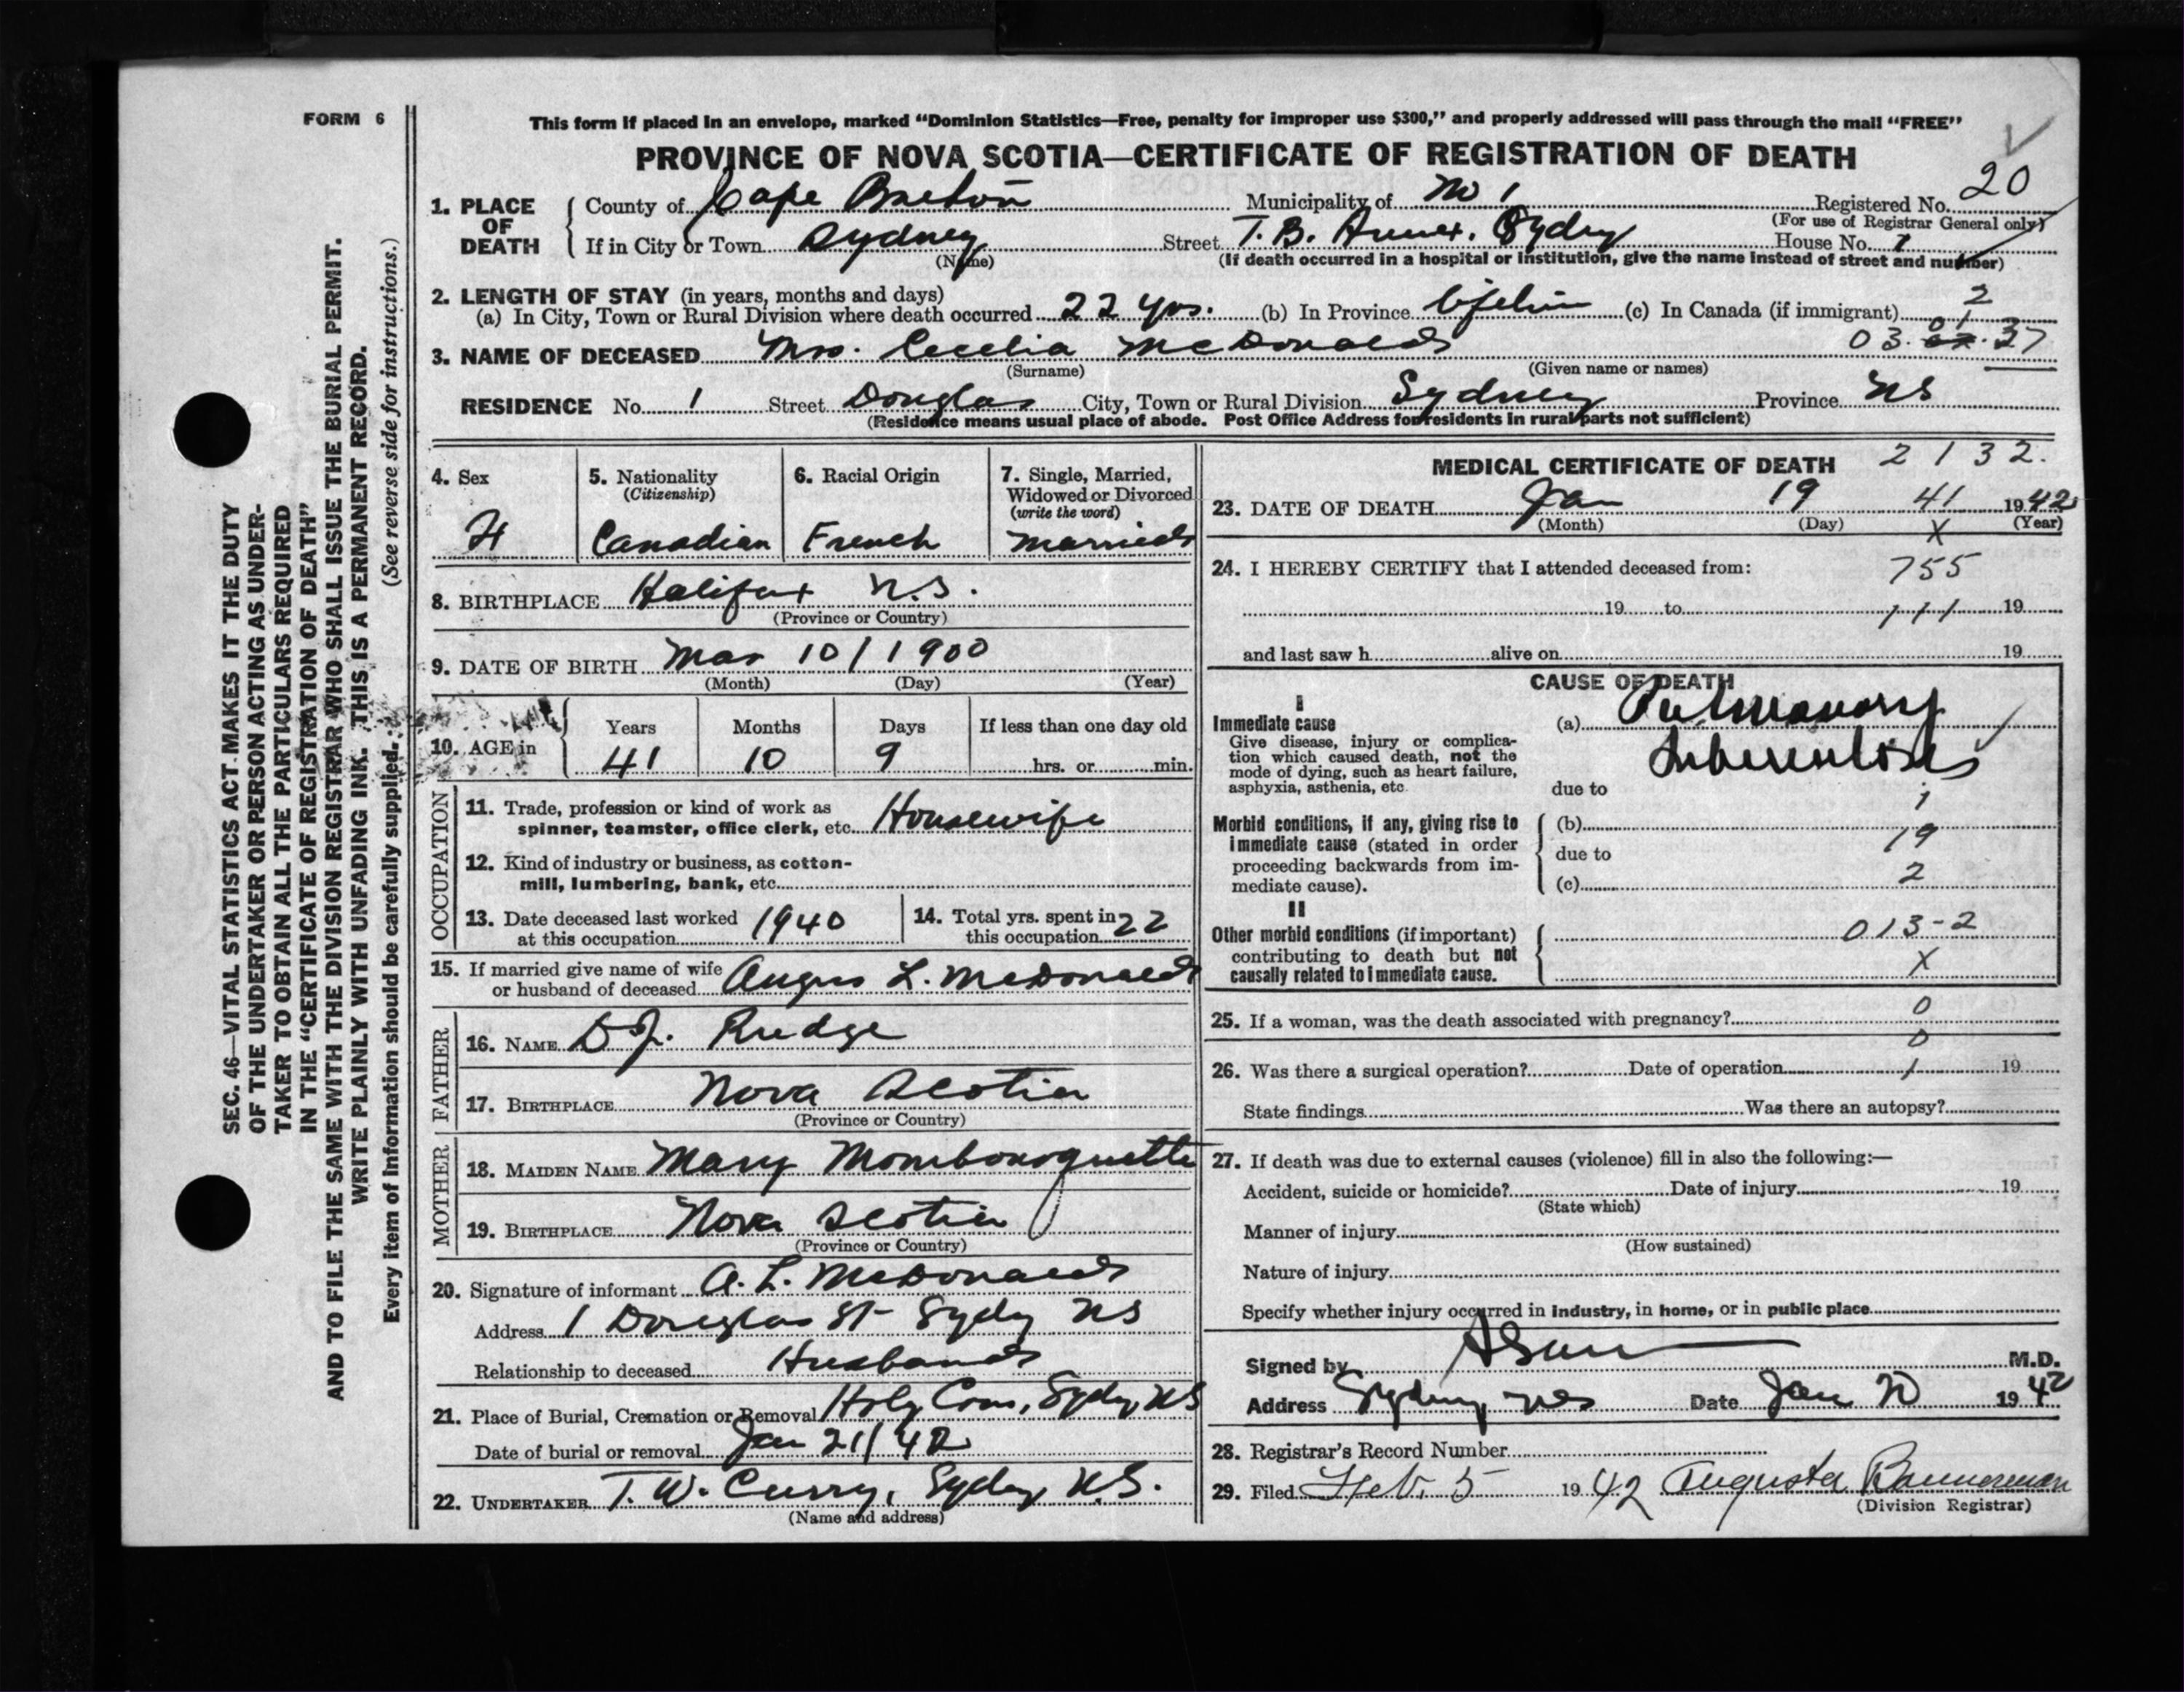 FORM 6
This form if placed in an envelope, marked "Dominion Statistics—Free, penalty for improper use $300," and properly addressed will pass through the mail "FREE"
PROVINCE OF NOVA SCOTIA—CERTIFICATE OF REGISTRATION OF DEATH
20
1. PLACE OF DEATH { County of Cape Breton Municipality of No 1 Registered No.
(For use of Registrar General only)
If in City or Town Sydney Street T. B. Annex. Sydny House No.
(Name) (If death occurred in a hospital or institution, give the name instead of street and number)
2. LENGTH OF STAY (in years, months and days) 2
(a) In City, Town or Rural Division where death occurred 22 yrs. (b) In Province Life (c) In Canada (if immigrant)
01
3. NAME OF DECEASED Mrs. Cecelia McDonald 03. 37
(Surname) (Given name or names)
RESIDENCE No. 1 Street Douglas City, Town or Rural Division Sydney Province NS
(Residence means usual place of abode. Post Office Address for residents in rural parts not sufficient)
SEC. 46—VITAL STATISTICS ACT MAKES IT THE DUTY
OF THE UNDERTAKER OR PERSON ACTING AS UNDER-
TAKER TO OBTAIN ALL THE PARTICULARS REQUIRED
IN THE "CERTIFICATE OF REGISTRATION OF DEATH"
AND TO FILE THE SAME WITH THE DIVISION REGISTRAR WHO SHALL ISSUE THE BURIAL PERMIT.
WRITE PLAINLY WITH UNFADING INK. THIS IS A PERMANENT RECORD.
Every item of information should be carefully supplied. (See reverse side for instructions.)
4. Sex 5. Nationality 6. Racial Origin 7. Single, Married,
(Citizenship) Widowed or Divorced
(write the word)
F Canadian French Married
8. BIRTHPLACE Halifax N.S.
(Province or Country)
9. DATE OF BIRTH Mar 10/1900
(Month) (Day) (Year)
10. AGE in { Years Months Days If less than one day old
41 10 9 hrs. or min.
OCCUPATION
11. Trade, profession or kind of work as
spinner, teamster, office clerk, etc. Housewife
12. Kind of industry or business, as cotton-
mill, lumbering, bank, etc.
13. Date deceased last worked 14. Total yrs. spent in
at this occupation 1940 this occupation 22
15. If married give name of wife
or husband of deceased Angus L. McDonald
FATHER
16. NAME D.J. Rudge
17. BIRTHPLACE Nova Scotia
(Province or Country)
MOTHER
18. MAIDEN NAME Mary Mombourquette
19. BIRTHPLACE Nova Scotia
(Province or Country)
20. Signature of informant A. L. McDonald
Address 1 Douglas St Sydny NS
Relationship to deceased Husband
21. Place of Burial, Cremation or Removal Holy Cross, Sydny NS
Date of burial or removal Jan 21/42
22. UNDERTAKER T. W. Curry, Sydny N.S.
(Name and address)
MEDICAL CERTIFICATE OF DEATH 2132.
23. DATE OF DEATH Jan 19 41 1942
(Month) (Day) X (Year)
24. I HEREBY CERTIFY that I attended deceased from: 755
19 to 111 19
and last saw h alive on 19
CAUSE OF DEATH
I
Immediate cause (a) Pulmonary
Give disease, injury or complica-
tion which caused death, not the Tuberculosis
mode of dying, such as heart failure,
asphyxia, asthenia, etc. due to 1
Morbid conditions, if any, giving rise to (b)
immediate cause (stated in order 19
proceeding backwards from im- due to
mediate cause). (c) 2
II
Other morbid conditions (if important) 013-2
contributing to death but not
causally related to immediate cause. X
0
25. If a woman, was the death associated with pregnancy?
0
26. Was there a surgical operation? Date of operation 1 19
State findings Was there an autopsy?
27. If death was due to external causes (violence) fill in also the following:—
Accident, suicide or homicide? Date of injury 19
(State which)
Manner of injury
(How sustained)
Nature of injury
Specify whether injury occurred in industry, in home, or in public place
Signed by M.D.
Address Sydney NS Date Jan 20 1942
28. Registrar's Record Number
29. Filed Feb. 5 1942 Augusta Bannerman
(Division Registrar)